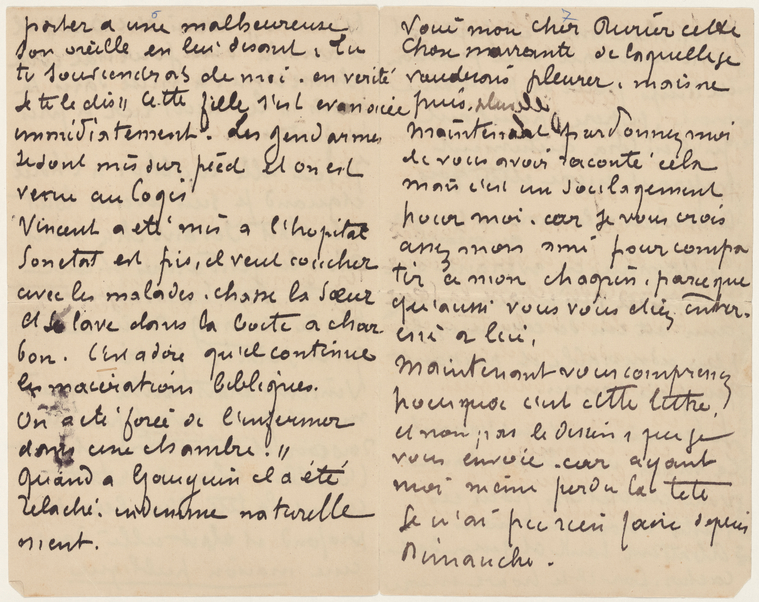 porter a une malheureuse
son oreille en lui disant, tu
te souviendras de moi. en verité
je te le dis" Cette fille s'est evanouie
immédiatement. Les gendarmes
se sont mis sur pied et on est
venu au logis
Vincent a eté mis a l'hopital
Son etat est pis, il veut coucher
avec les malades, chasse la sœur
et se lave dans la boite a char
bon. C'est a dire qu'il continue
les macerations bibliques.
On a eté forcé de l'enfermer
dans une chambre."
Quand a Gauguin il a été
relaché. indemne naturelle
ment.
6
7
Voila mon cher Aurier cette
chose navrante de laquelle je
voudrais pleurer, mais ne
puis.
Maintenant pardonnez moi
de vous avoir raconté cela
mais c'est un soulagement
pour moi. car je vous crois
assez mon ami pour compa
tir à mon chagrin, parceque
qu'aussi vous vous etiez interes-
essé a lui,
Maintenant vous comprenez
pourquoi c'est cette lettre,
et non pas le dessin, que je
vous envoie. car ayant
moi même perdu la tete
Je n'ai pu rien faire depuis
Dimanche.